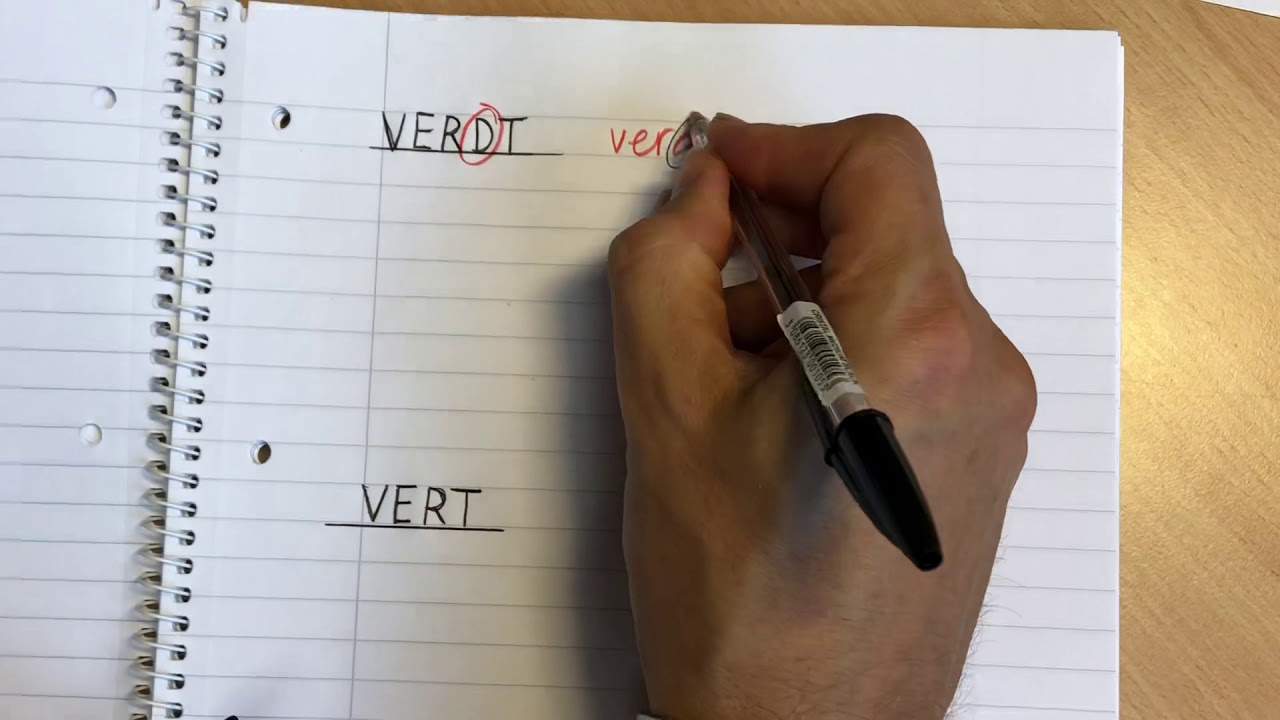 VERDT ver
VERT